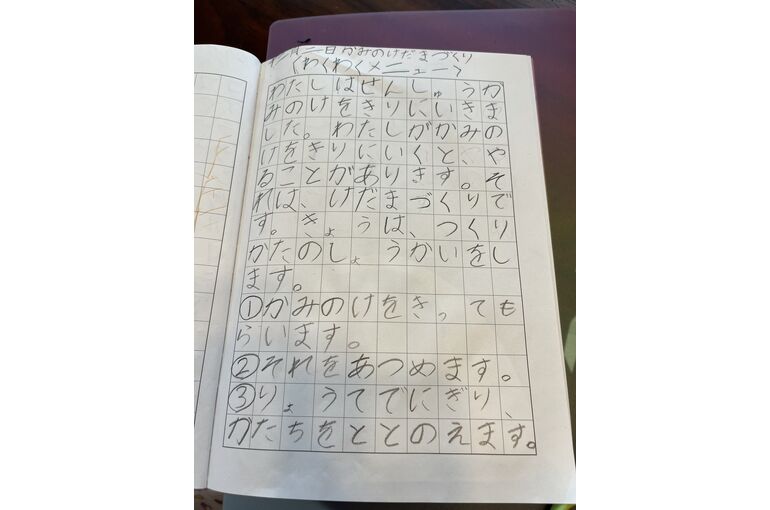 十二月二日かみのけだまづくり
〈わくわくメニュー〉
わたしはせんしゅうか
みのけをきりにいきま
した。わたしがかみの
けをきりにいくと、や
ることがあります。そ
れは、けだまづくりで
す。きょうは、つくり
かたのしょうかいをし
ます。
①かみのけをきっても
らいます。
②それをあつめます。
③りょうてでにぎり、
かたちをととのえます。